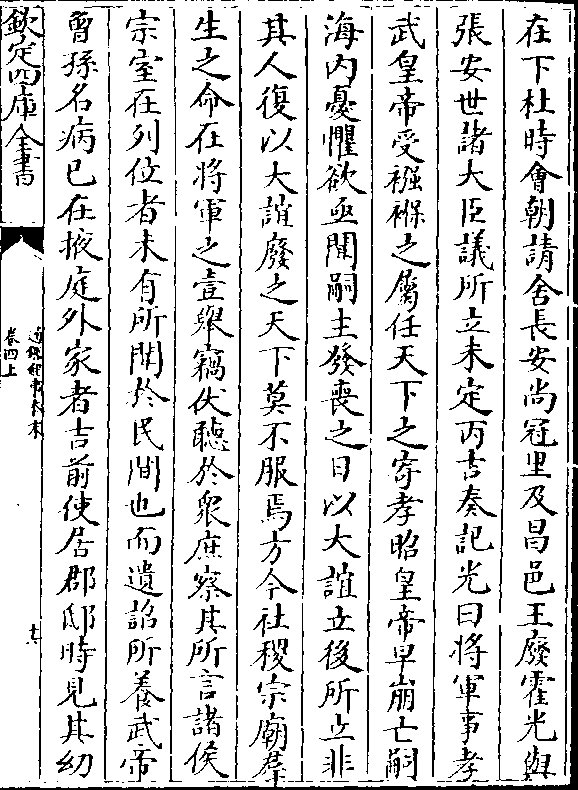 在下杜時會朝請舍長安尚冠里及昌邑王廢霍光與
張安世諸大臣議所立未定丙吉奏記光曰將軍事孝
武皇帝受襁褓之屬任天下之寄孝昭皇帝早崩亡嗣
海内憂懼欲亟聞嗣主發喪之日以大誼立後所立非
其人復以大誼廢之天下莫不服焉方今社稷宗廟羣
生之命在將軍之壹舉竊伏聽於衆庶察其所言諸侯
宗室在列位者未有所聞於民間也而遺詔所養武帝
曾孫名病已在掖庭外家者吉前使居郡邸時見其幼
欽定四庫全書
通鑑紀事本末
卷四上